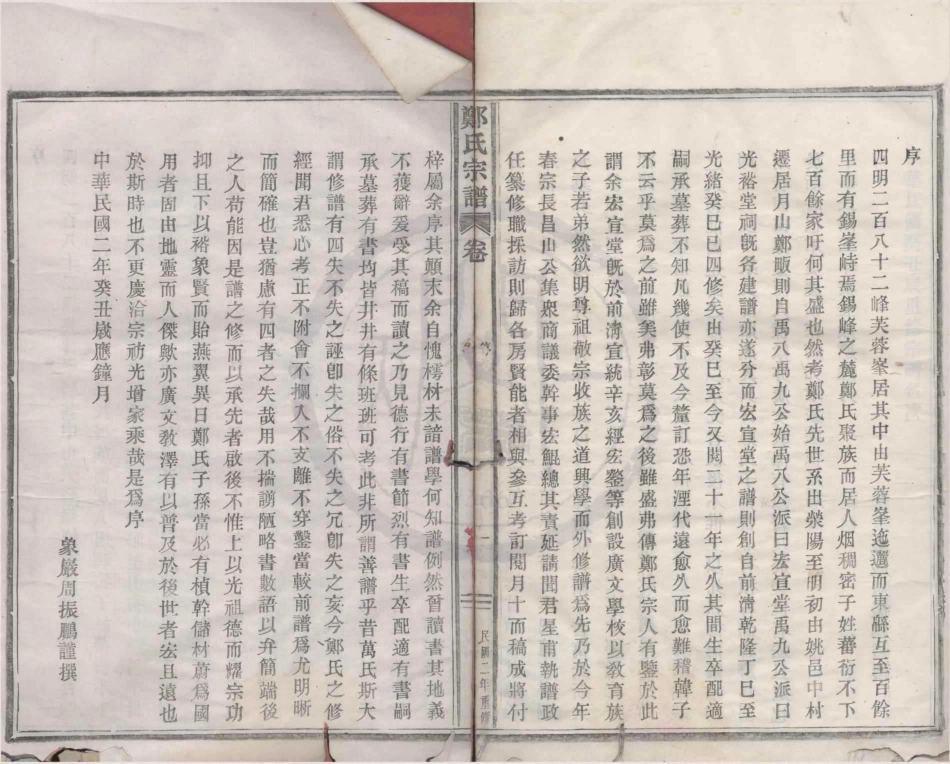 序
四明二百八十二峰芙蓉峯居其中由芙蓉峯迤邐而東緜互至百餘
里而有錫峯峙焉錫峰之麓鄭氏聚族而居人烟稠密子姓蕃衍不下
七百餘家吁何其盛也然考鄭氏先世系出滎陽至明初由姚邑中村
遷居月山鄭畈則自禹八禹九公始禹八公派曰宏宣堂禹九公派曰
光裕堂祠旣各建譜亦遂分而宏宣堂之譜則創自前淸乾隆丁巳至
光緖癸巳已四修矣由癸巳至今又閱二十年之久其間生卒配適
嗣承墓葬不知凡幾使不及今釐訂恐年湮代遠愈久而愈難稽韓子
不云乎莫爲之前雖美弗彰莫爲之後雖盛弗傳鄭氏宗人有鑒於此
謂余宏宣堂旣於前淸宣統辛亥經宏鎣等創設廣文學校以敎育族
之子若弟然欲明尊祖敬宗收族之道興學而外修譜爲先乃於今年
春宗長昌山公集衆商議委幹事宏鯤總其責延請聞君星甫執譜政
任纂修職採訪則歸各房賢能者相與參互考訂閱月十而稿成將付
鄭氏宗譜
卷
一
民國二年重修
梓屬余序其顚末余自愧樗材未諳譜學何知譜例然嘗讀書其地義
不獲辭爰受其稿而讀之乃見德行有書節烈有書生卒配適有書嗣
承墓葬有書均皆井井有條班班可考此非所謂善譜乎昔萬氏斯大
謂修譜有四失不失之誣卽失之俗不失之冗卽失之妄今鄭氏之修
經聞君悉心考正不附會不攔入不支離不穿鑿當較前譜爲尤明晰
而簡確也豈猶慮有四者之失哉用不揣謭陋略書數語以弁簡端後
之人苟能因是譜之修而以承先者啟後不惟上以光祖德而耀宗功
抑且下以褚象賢而貽燕翼異日鄭氏子孫當必有楨幹儲材蔚爲國
用者固由地靈而人傑歟亦廣文敎澤有以普及於後世者宏且遠也
於斯時也不更慶洽宗祊光增家乘哉是爲序
中華民國二年癸丑歲應鐘月
象巖周振鵬謹撰